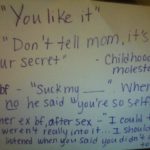 "You like it"
"Don't tell mom, it's
ur secret" - Childhood
molest
bf - "Suck my ___". When
no he said "you're so self
er ex bf, after sex - "I could t
weren't really into it... I should
listened when you said you didn't